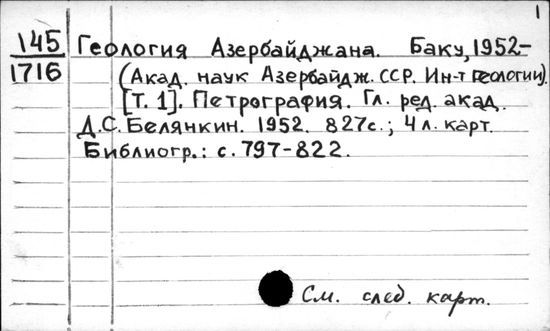 1
145 Геология Азербайджана. Баку, 1952-
1716 (Акад. наук Азербайдж. ССР. Ин-т геологии).
[Т. 1]. Петрография. Гл. ред. акад.
Д.С. Белянкин. 1952. 827с.; 4 л. карт.
Библиогр.: с. 797-822.
См. след. карт.